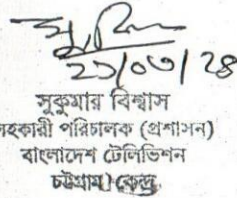 ২১/০৩/২৪
সুকুমার বিশ্বাস
সহকারী পরিচালক (প্রশাসন)
বাংলাদেশ টেলিভিশন
চট্টগ্রাম কেন্দ্র